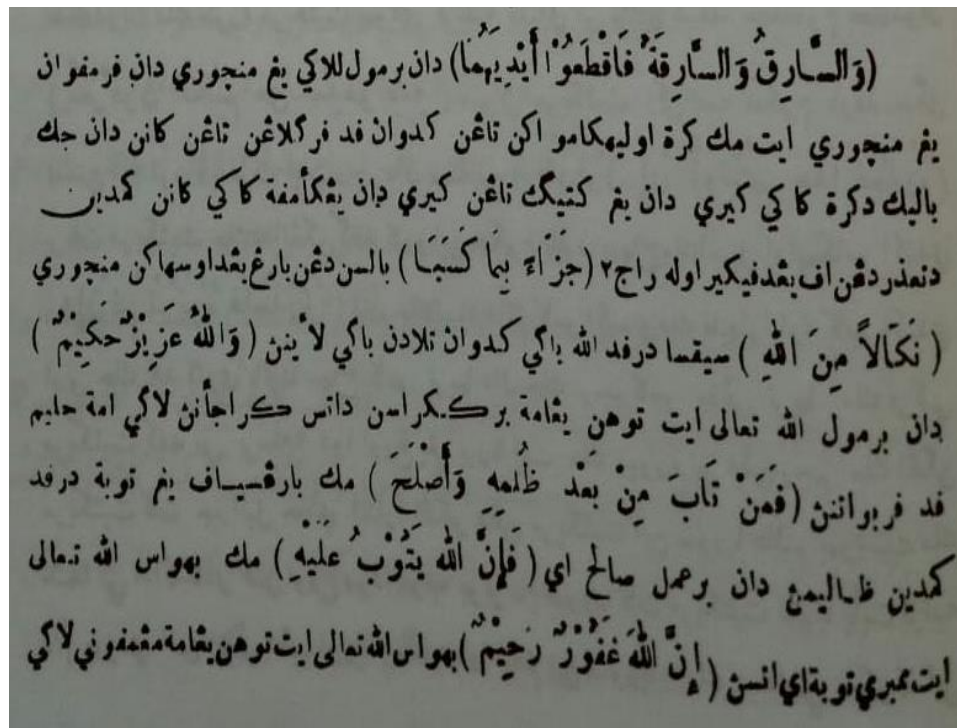 (وَالسَّارِقُ وَالسَّارِقَةُ فَاقْطَعُوْا أَيْدِيَهُمَا) دان برمول للاكي يڠ منچوري دان فرمفوان
يڠ منچوري ايت مك كرة اوليهكامو اكن تاڠن كدوان فد فركلاڠن تاڠن كانن دان جك
باليك دكرة كاكي كيري دان يڠ كتيݢ تاڠن كيري دان يڠكأمفة كاكي كانن كمدين
دتعذر دڠن اف يڠدفيكير اوله راج٢ (جَزَآءً بِمَا كَسَبَا) بالسن دڠن بارڠ يڠداوسهاكن منچوري
(نَكَالاً مِنَ اللهِ) سيقسا درفد الله باكي كدوان تلادن باكي لأينن (وَاللهُ عَزِيْزٌ حَكِيْمٌ)
دان برمول الله تعالى ايت توهن يڠامة برككراسن داتس كراجأنن لاكي امة حليم
فد فربواتنن (فَمَنْ تَابَ مِنْ بَعْدِ ظُلْمِهِ وَأَصْلَحَ) مك بارڠسياف يڠ توبة درفد
كمدين ظاليمن دان برعمل صالح اي (فَإِنَّ اللهَ يَتُوْبُ عَلَيْهِ) مك بهواس الله تعالى
ايت ممبري توبة اي اتسن (إِنَّ اللهَ غَفُوْرٌ رَحِيْمٌ) بهواس الله تعالى ايت توهن يڠامة مڠمفوني لاكي